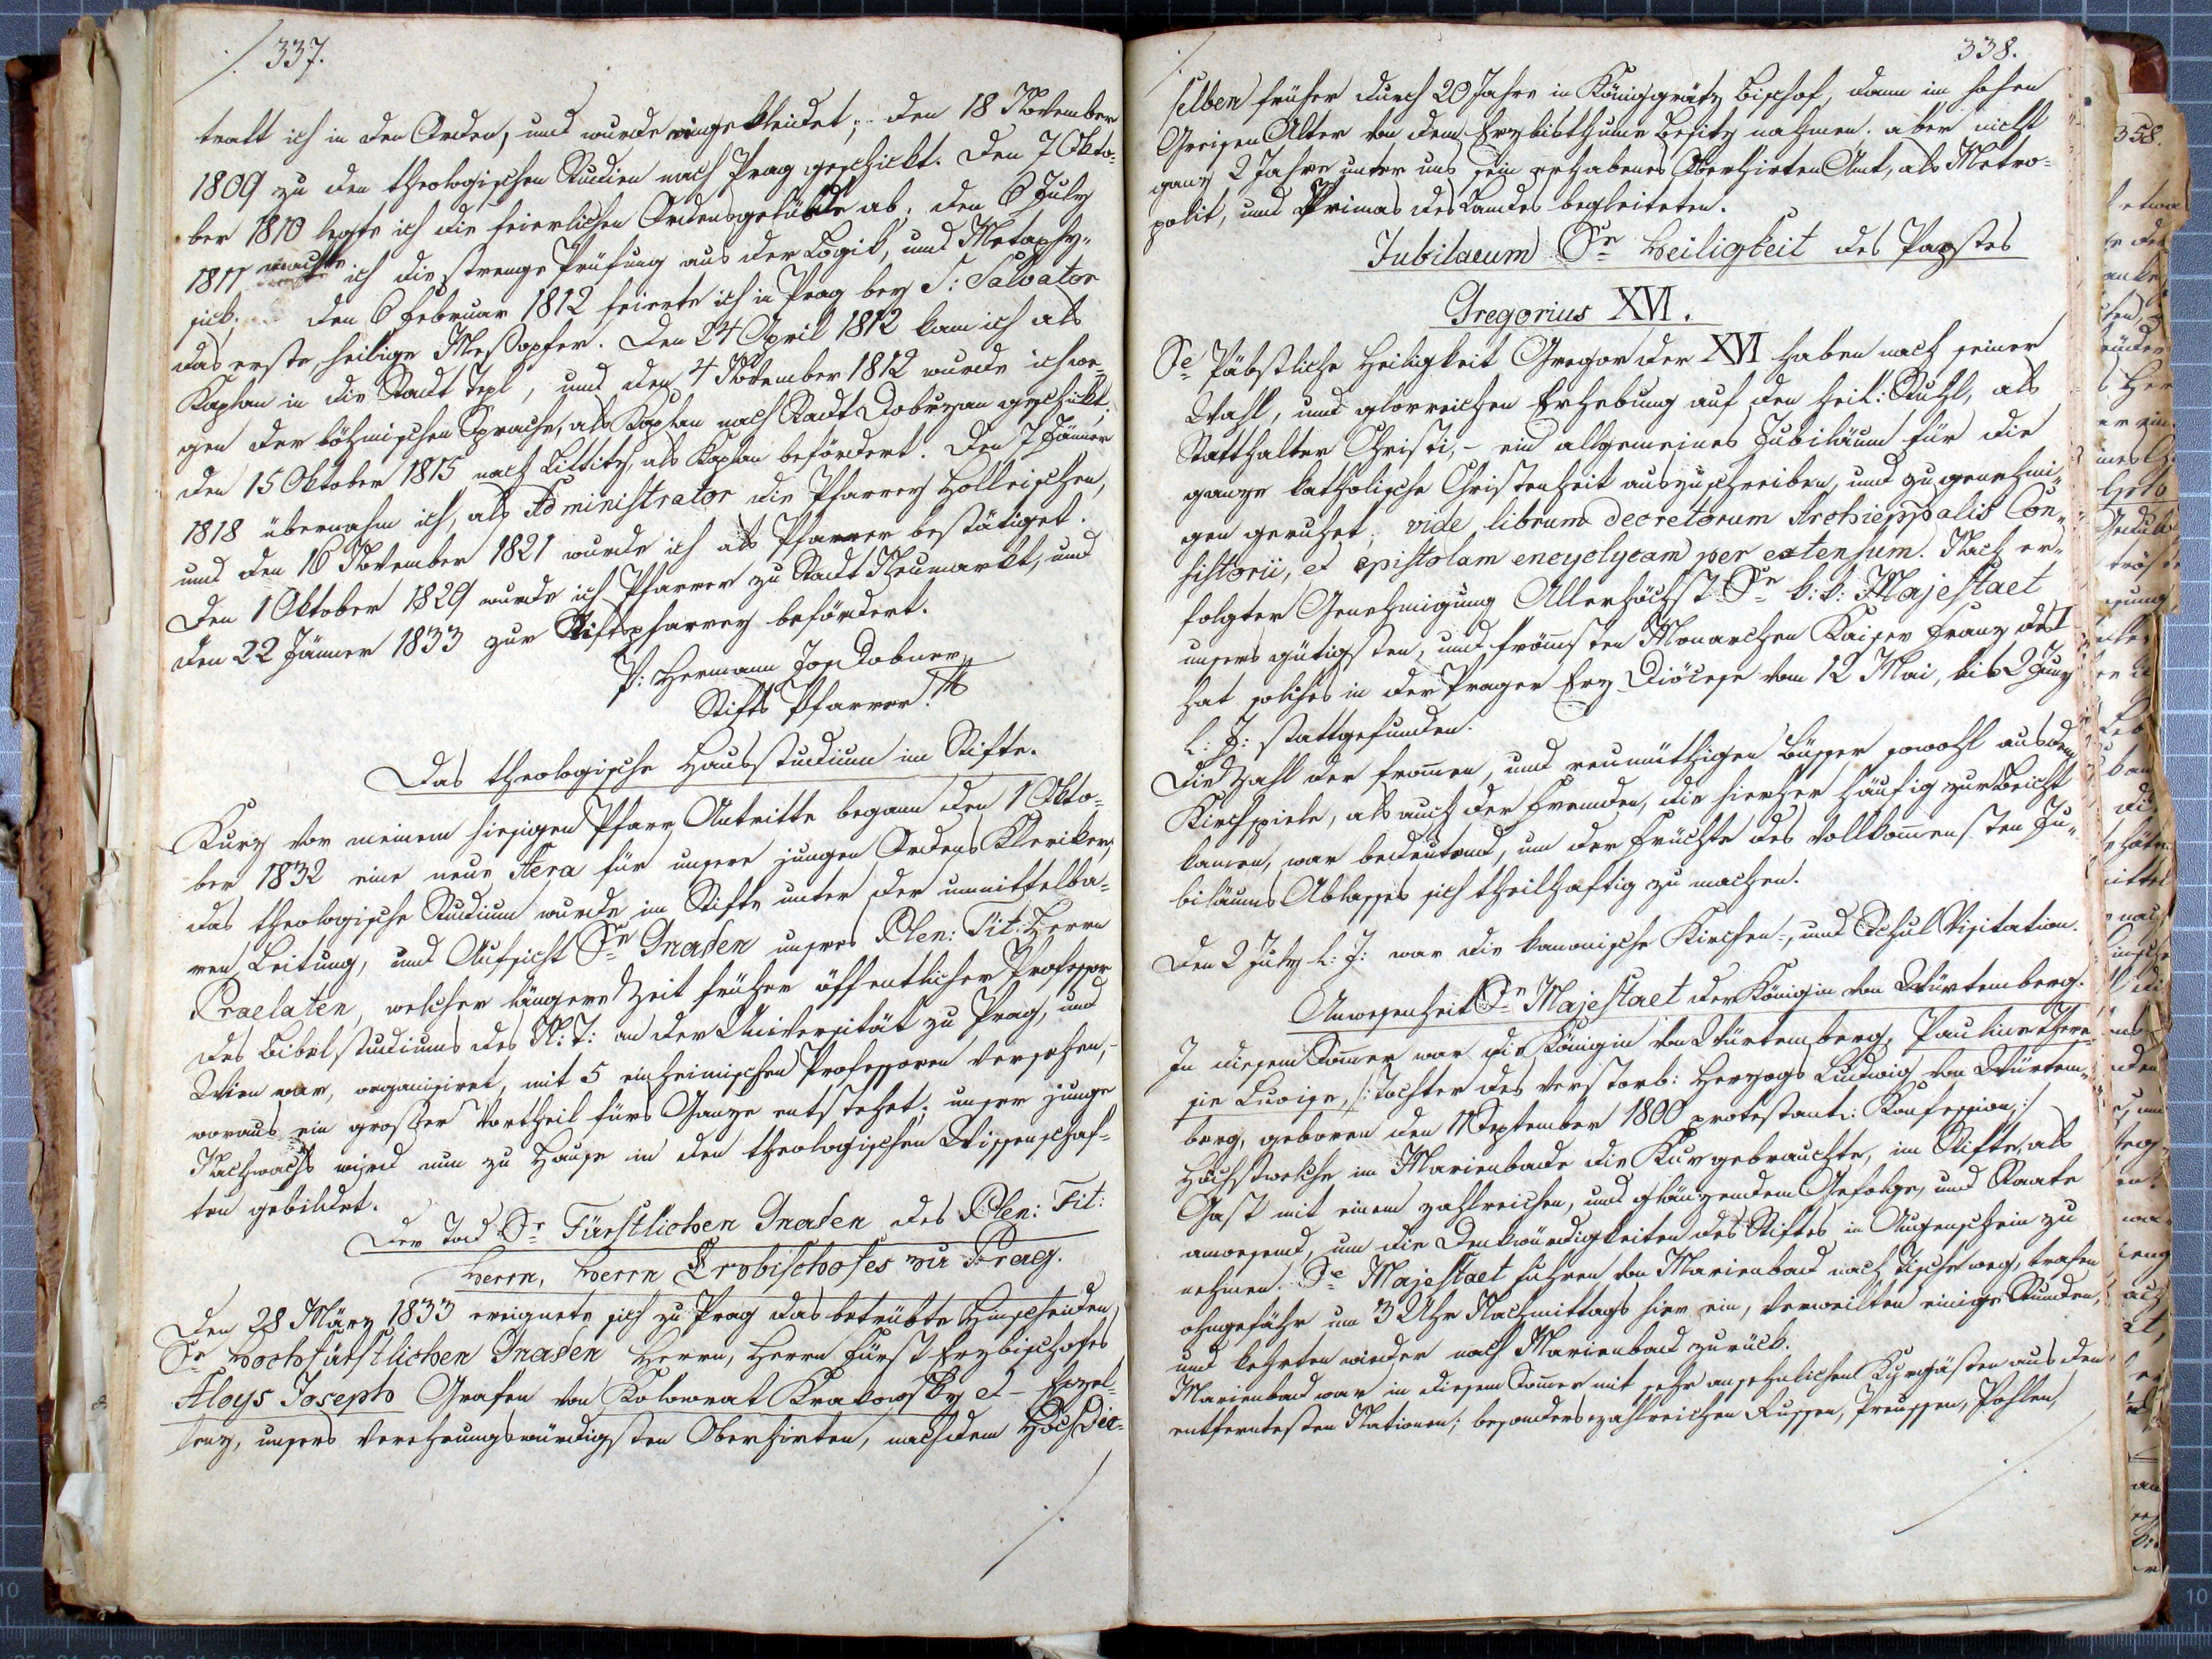 337.
tratt ich in den Orden, und wurde eingekleidet; den 18 November
1809 zu den theologischen Studien nach Prag geschickt. Den 7 Okto=
ber 1810 legte ich die feierlichen Ordensgelübde ab; den 6 July
1811 machte ich die strenge Prüfung aus der Logik, und Metaphy=
sick. Den 6 Februar 1812 feierte ich in Prag bey S: Salvator
das erste, heilige Meßopfer. Den 24 April 1812 kam ich als
Kaplan in die Stadt Tepl, und den 4 November 1812 wurde ich we=
gen der böhmischen Sprache, als Kaplan nach Stadt Dobrzan geschickt.
Den 15 Oktober 1815 nach Littitz, als Kaplan befördert. Den 7 Jänner
1818 übernahm ich, als Administrator die Pfarrey Holleischen,
und den 16 November 1821 wurde ich als Pfarrer bestätiget.
Den 1 Oktober 1829 wurde ich Pfarrer zu Stadt Neumarkt, und
den 22 Jänner 1833 zur Stiftspfarrey befördert.
P: Hermann Jos Dobner
Stifts Pfarrer.
Das theologische Hausstudium im Stifte.
Kurz vor meinem hiesigen Pfarr Antritte begann den 1 Okto=
ber 1832 eine neue Aera für unsere jungen Ordens Kleriker,
das theologische Studium wurde im Stifte unter der unmittelba=
ren Leitung, und Aufsicht Sr Gnaden unsres Plen: Tit: Herrn
Praelaten, welcher längere Zeit früher öffentlicher Professor
des Bibelstudiums des N: T: an der Universität zu Prag, und
Wien war, organisiret, mit 5 einheimischen Professoren versehen,-
woraus ein großer Vortheil fürs Ganze entstehet; unser junge
Nachwachs wird nun zu Hause in den theologischen Wissenschaf=
ten gebildet.
Der Tod Sr Fürstlichen Gnaden des Plen: Tit:
Herrn, Herrn Erzbischofes zu Prag.
Den 28 März 1833 ereignete sich zu Prag das betrübte Hinscheiden
Sr Hochfürstlichen Gnaden Herrn, Herrn Fürst Erzbischofes
Aloys Joseph Grafen von Kolowrat Krakowsky et - Exzel=
lenz, unsers verehrungswürdigsten Oberhirten, nachdem Hochdie=
338.
selben früher durch 20 Jahre in Königgrätz Bischof, dann im hohen
Greisen Alter von dem Erzbisthume Besitz nahmen. aber nicht
ganz 2 Jahre unter uns sein erhabenes Oberhirten Amt, als Metro=
polit, und Primas des Landes begleiteten.
Jubilaeum Sr Heiligkeit des Papstes
Gregorius XVI.
Se Päbstliche Heiligkeit Gregor der XVI haben nach seiner
Wahl, und glorreichen Erhebung auf den heil: Stuhl, als
Statthalter Christi,- ein allgemeines Jubiläum für die
ganze katholische Christenheit auszuschreiben, und zu genehmi=
gen geruhet. vide librum decretorum Archieppalis Con=
sistorii, et epistolam encyclycam per extensum. Nach er=
folgter Genehmigung Allerhöchst Sr k: k: Majestaet
unsers gütigsten, und frömsten Monarchen Kaiser Franz des I
hat solches in der Prager Erz Diöcese vom 12 Mai, bis 2 Juny
l: J: stattgefunden.
Die Zahl der fromen, und reumüthigen Büsser sowohl aus dem
Kirchspiele, als auch der Fremden, die hierher häufig zur Beicht
kamen, war bedeutend, um der Früchte des vollkomensten Ju=
biläums Ablasses sich theilhaftig zu machen.
Den 2 July l: J: war die kanonische Kirchen-, und Schul Visitation.
Anwesenheit Sr Majestaet der Königin von Würtemberg.
In diesem Somer war die Königin von Würtemberg, Pauline There=
sie Luise, /: Tochter des verstorb: Herzogs Ludwig von Würtem=
berg, geboren den 4 September 1800 protestant: Konfession,:/
höchstwelche im Marienbade die Kur gebrauchte, im Stifte, als
Gast mit einem zahlreichen, und glänzendem Gefolge, und Staate
anwesend, um die Denkwürdigkeiten des Stiftes in Augenschein zu
nehmen. Se Majestaet fuhren von Marienbad nach Tische weg, trafen
ohngefähr um 3 Uhr Nachmittags hier ein, verweilten einige Stunden,
und kehrten wieder nach Marienbad zurück.
Marienbad war in diesem Somer mit sehr ansehnlichen Kurgästen aus den
entferntesten Nationen; besonders zahlreichen Russen, Preussen, Pohlen
358.